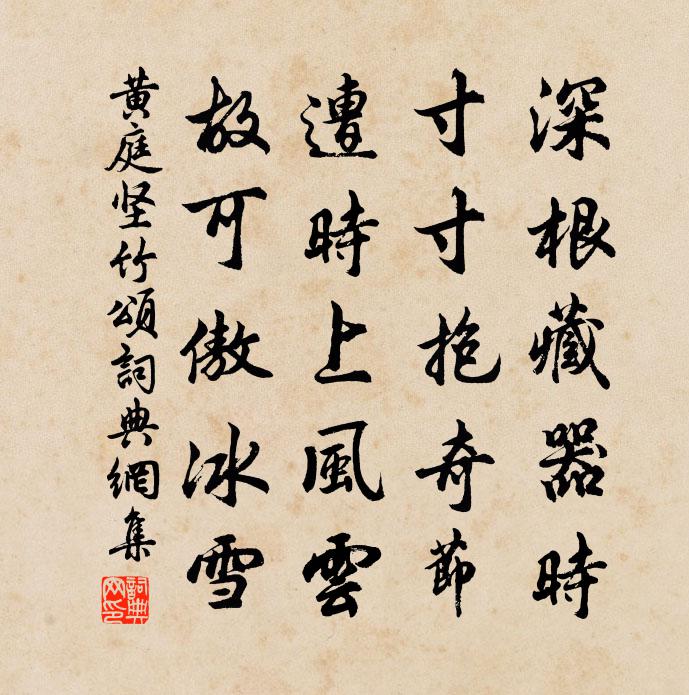 深根藏器時
寸寸抱奇節
遭時上風雲
故可傲冰雪
黃庭坚竹頌詞典網集
詞典网印